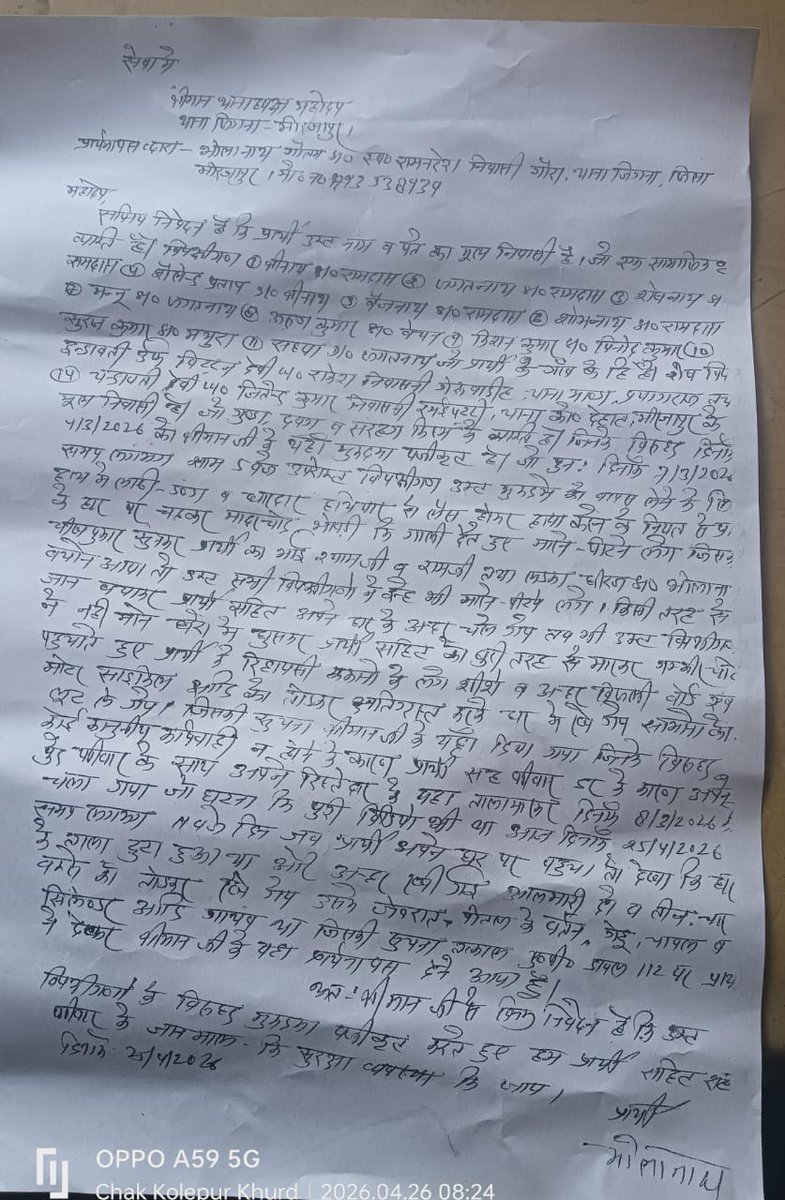 सेवा में
श्रीमान थानाध्यक्ष महोदय
थाना जिगना - मीरजापुर।
प्रार्थनापत्र द्वारा - भोलानाथ गौतम S/० स्व० रामनरेश निवासी गौरा, थाना जिगना, जिला
मीरजापुर। मो० न०
महोदय,
सविनय निवेदन है कि प्रार्थी उक्त नाम व पते का मूल निवासी है। जो एक सामाजिक
व्यक्ति है। विपक्षीगण ① श्रीनाथ S/० रामदास ② जगतनाथ S/० रामदास ③ शेषनाथ S
रामदास ④ शैलेन्द्र प्रताप S/० श्रीनाथ ⑤ बैजनाथ S/० रामदास शोभनाथ S/० रामदास
मन्नू S/० जगतनाथ अरुण कुमार S/० बेचन ⑨ किशन कुमार S/० विनोद कुमार ⑩
सूरज कुमार S/० मथुरा ⑪ सन्ध्या जगतनाथ जो प्रार्थी के गाँव के हि है। शेष विप
इन्द्रावती उर्फ बिट्टन देवी W/० राकेश निवासिनी थाना माण्डा, प्रयागराज
⑭ चन्द्रावती देवी W/० जितेन्द्र कुमार निवासिनी थाना को० देहात मीरजापुर के
मूल निवासी है। जो गुण्डा, दबंग व सरहंग किस्म के व्यक्ति है। जिनके विरुद्ध दिनाँक
4/3/2026 को श्रीमान जी के यहाँ मुकदमा पंजीकृत है। जो पुनः दिनाँक 7/3/2026
समय लगभग शाम 5 बजे उपरोक्त विपक्षीगण उक्त मुकदमे को वापस लेने के लि
हाथ में लाठी-डंडा व धारदार हथियार से लैस होकर हत्या करने के नियत से प्रा
के घर पर चढ़कर मादरचोद, कि गाली देते हुए मारने-पीटने लगे जिसकी
चीखपुकार सुनकर प्रार्थी का भाई श्यामजी व रामजी तथा लड़का धीरज S/० भोलाना
बचाने आया तो उक्त सभी विपक्षीगणों ने उन्हें भी मारने-पीटने लगे। किसी तरह से
जान बचाकर प्रार्थी सहित अपने घर के अन्दर चले गये तब भी उक्त विपक्षीगण
ने नहीं माने घर में घुसकर प्रार्थी सहित को बुरी तरह से मारकर गम्भीर चोट
पहुचाते हुए प्रार्थी के रिहायसी मकानो के लगे शीशे व अन्दर बिजली बोर्ड
मोटर साइकिल आदि को तोड़कर क्षतिग्रस्त करके घर में रखे गये सामानो को
लूट ले गये। जिसकी सूचना श्रीमान जी के यहाँ दिया गया जिनके विरुद्ध
कोई कानूनीय कार्यवाही न होने के कारण प्रार्थी सह परिवार डर के कारण अपने
पूरे परिवार के साथ अपने रिश्तेदार के यहा तालामारकर दिनाँक 8/3/2026 को
चला गया जो घटना कि पूरी विडियो भी था आज दिनाँक 25/4/2026
समय लगभग बजे दिन जब प्रार्थी अपने घर पर पहुचा तो देखा कि घर
के ताला टूटा हुआ था और अन्दर रखी गई आलमारी दो व तीन-चार
बक्से को तोड़कर रखे गये उसमे जेवरात, पीतल के बर्तन, गेहूं, चावल व
सिलेण्डर आदि गायब था जिसकी सूचना तत्काल डायल 112 पर प्रार्थ
ने देकर श्रीमान जी के यहा प्रार्थनापत्र देने आया है।
अतः श्रीमान जी से निवेदन है कि उक्त
विपक्षीगणों के विरुद्ध मुकदमा पंजीकृत करते हुए हम प्रार्थी सहित सह
परिवार के जान माल कि सुरक्षा व्यवस्था कि जाय।
दिनाँक- 25/4/2026
प्रार्थी
भोलानाथ
OPPO A59 5G
Chak Kolepur Khurd | 2026.04.26 08:24